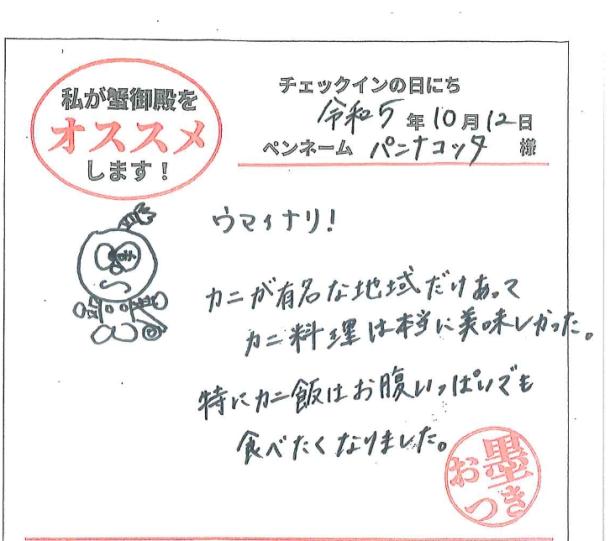 私が蟹御殿を
オススメ
します！
チェックインの日にち
令和5年10月12日
ペンネーム パンナコッタ 様
ウマイナリ！
カニが有名な地域だけあって
カニ料理は本当に美味しかった。
特にカニ飯はお腹いっぱいでも
食べたくなりました。
お墨
つき